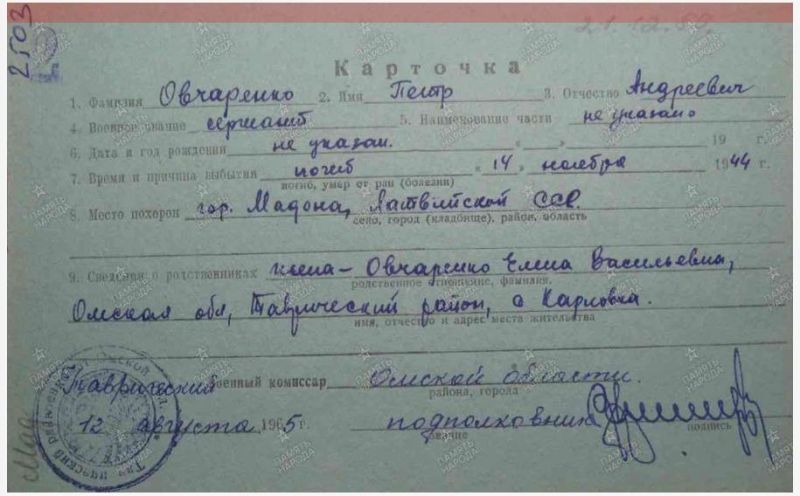 2503
21.12.59.
Карточка
1. Фамилия Овчаренко 2. Имя Петр 3. Отчество Андреевич
4. Военное звание сержант 5. Наименование части не указано
6. Дата и год рождения не указан. « » 19 г.
7. Время и причина выбытия погиб « 14 » ноября 1944 г.
погиб, умер от ран (болезни)
8. Место похорон гор. Мадона, Латвийской ССР.
село, город (кладбище), район, область
9. Сведения о родственниках жена – Овчаренко Елена Васильевна,
родственное отношение, фамилия,
Омская обл, Таврический район, с Карповка.
имя, отчество и адрес места жительства
Таврический военный комиссар Омской области.
района, города
12 августа 1965 г. подполковник
звание подпись
Мад
ПАМЯТЬ НАРОДА